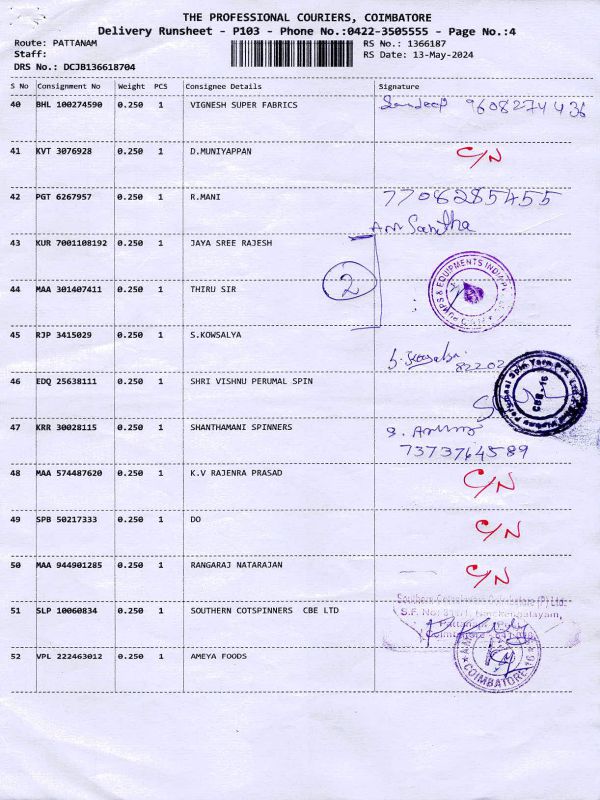 THE PROFESSIONAL COURIERS, COIMBATORE
Delivery Runsheet - P103 - Phone No.:0422-3505555 - Page No.:4
Route: PATTANAM RS No.: 1366187
Staff: RS Date: 13-May-2024
DRS No.: DCJB136618704
S No Consignment No Weight PCS Consignee Details Signature
40 BHL 100274590 0.250 1 VIGNESH SUPER FABRICS Sandeep 9608274436
41 KVT 3076928 0.250 1 D.MUNIYAPPAN C/N
42 PGT 6267957 0.250 1 R.MANI 7708285455
Santha
43 KUR 7001108192 0.250 1 JAYA SREE RAJESH
2
PUMPS & EQUPMENTS INDIA
44 MAA 301407411 0.250 1 THIRU SIR
45 RJP 3415029 0.250 1 S.KOWSALYA
S. Kowsalya
82202
46 EDQ 25638111 0.250 1 SHRI VISHNU PERUMAL SPIN
Perumal Spin Yarn Pvt. Ltd.
CBE - 16
47 KRR 30028115 0.250 1 SHANTHAMANI SPINNERS
7373764589
48 MAA 574487620 0.250 1 K.V RAJENRA PRASAD C/N
49 SPB 50217333 0.250 1 DO C/N
50 MAA 944901285 0.250 1 RANGARAJ NATARAJAN C/N
51 SLP 10060834 0.250 1 SOUTHERN COTSPINNERS CBE LTD
Southern Cotspinners Coimbatore (P) Ltd.
Coimbatore
52 VPL 222463012 0.250 1 AMEYA FOODS
COIMBATORE